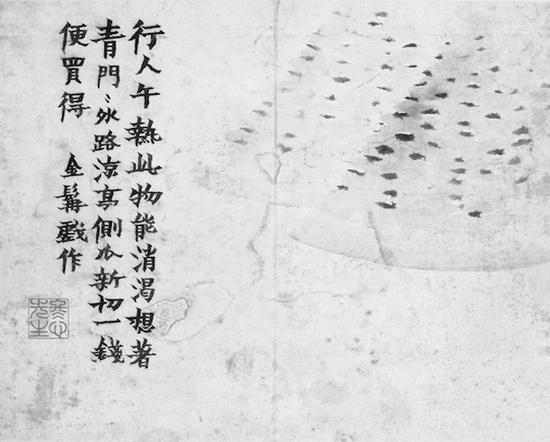 行人午熱此物能消渴想著
青門〻外路涼亭側瓜新切一錢
便買得
金髯戲作
冬心先生